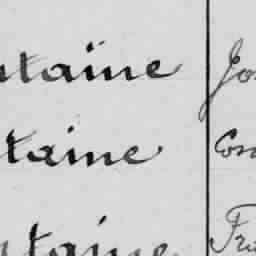 ntaine Jos
taine Cons
ntaine Fra